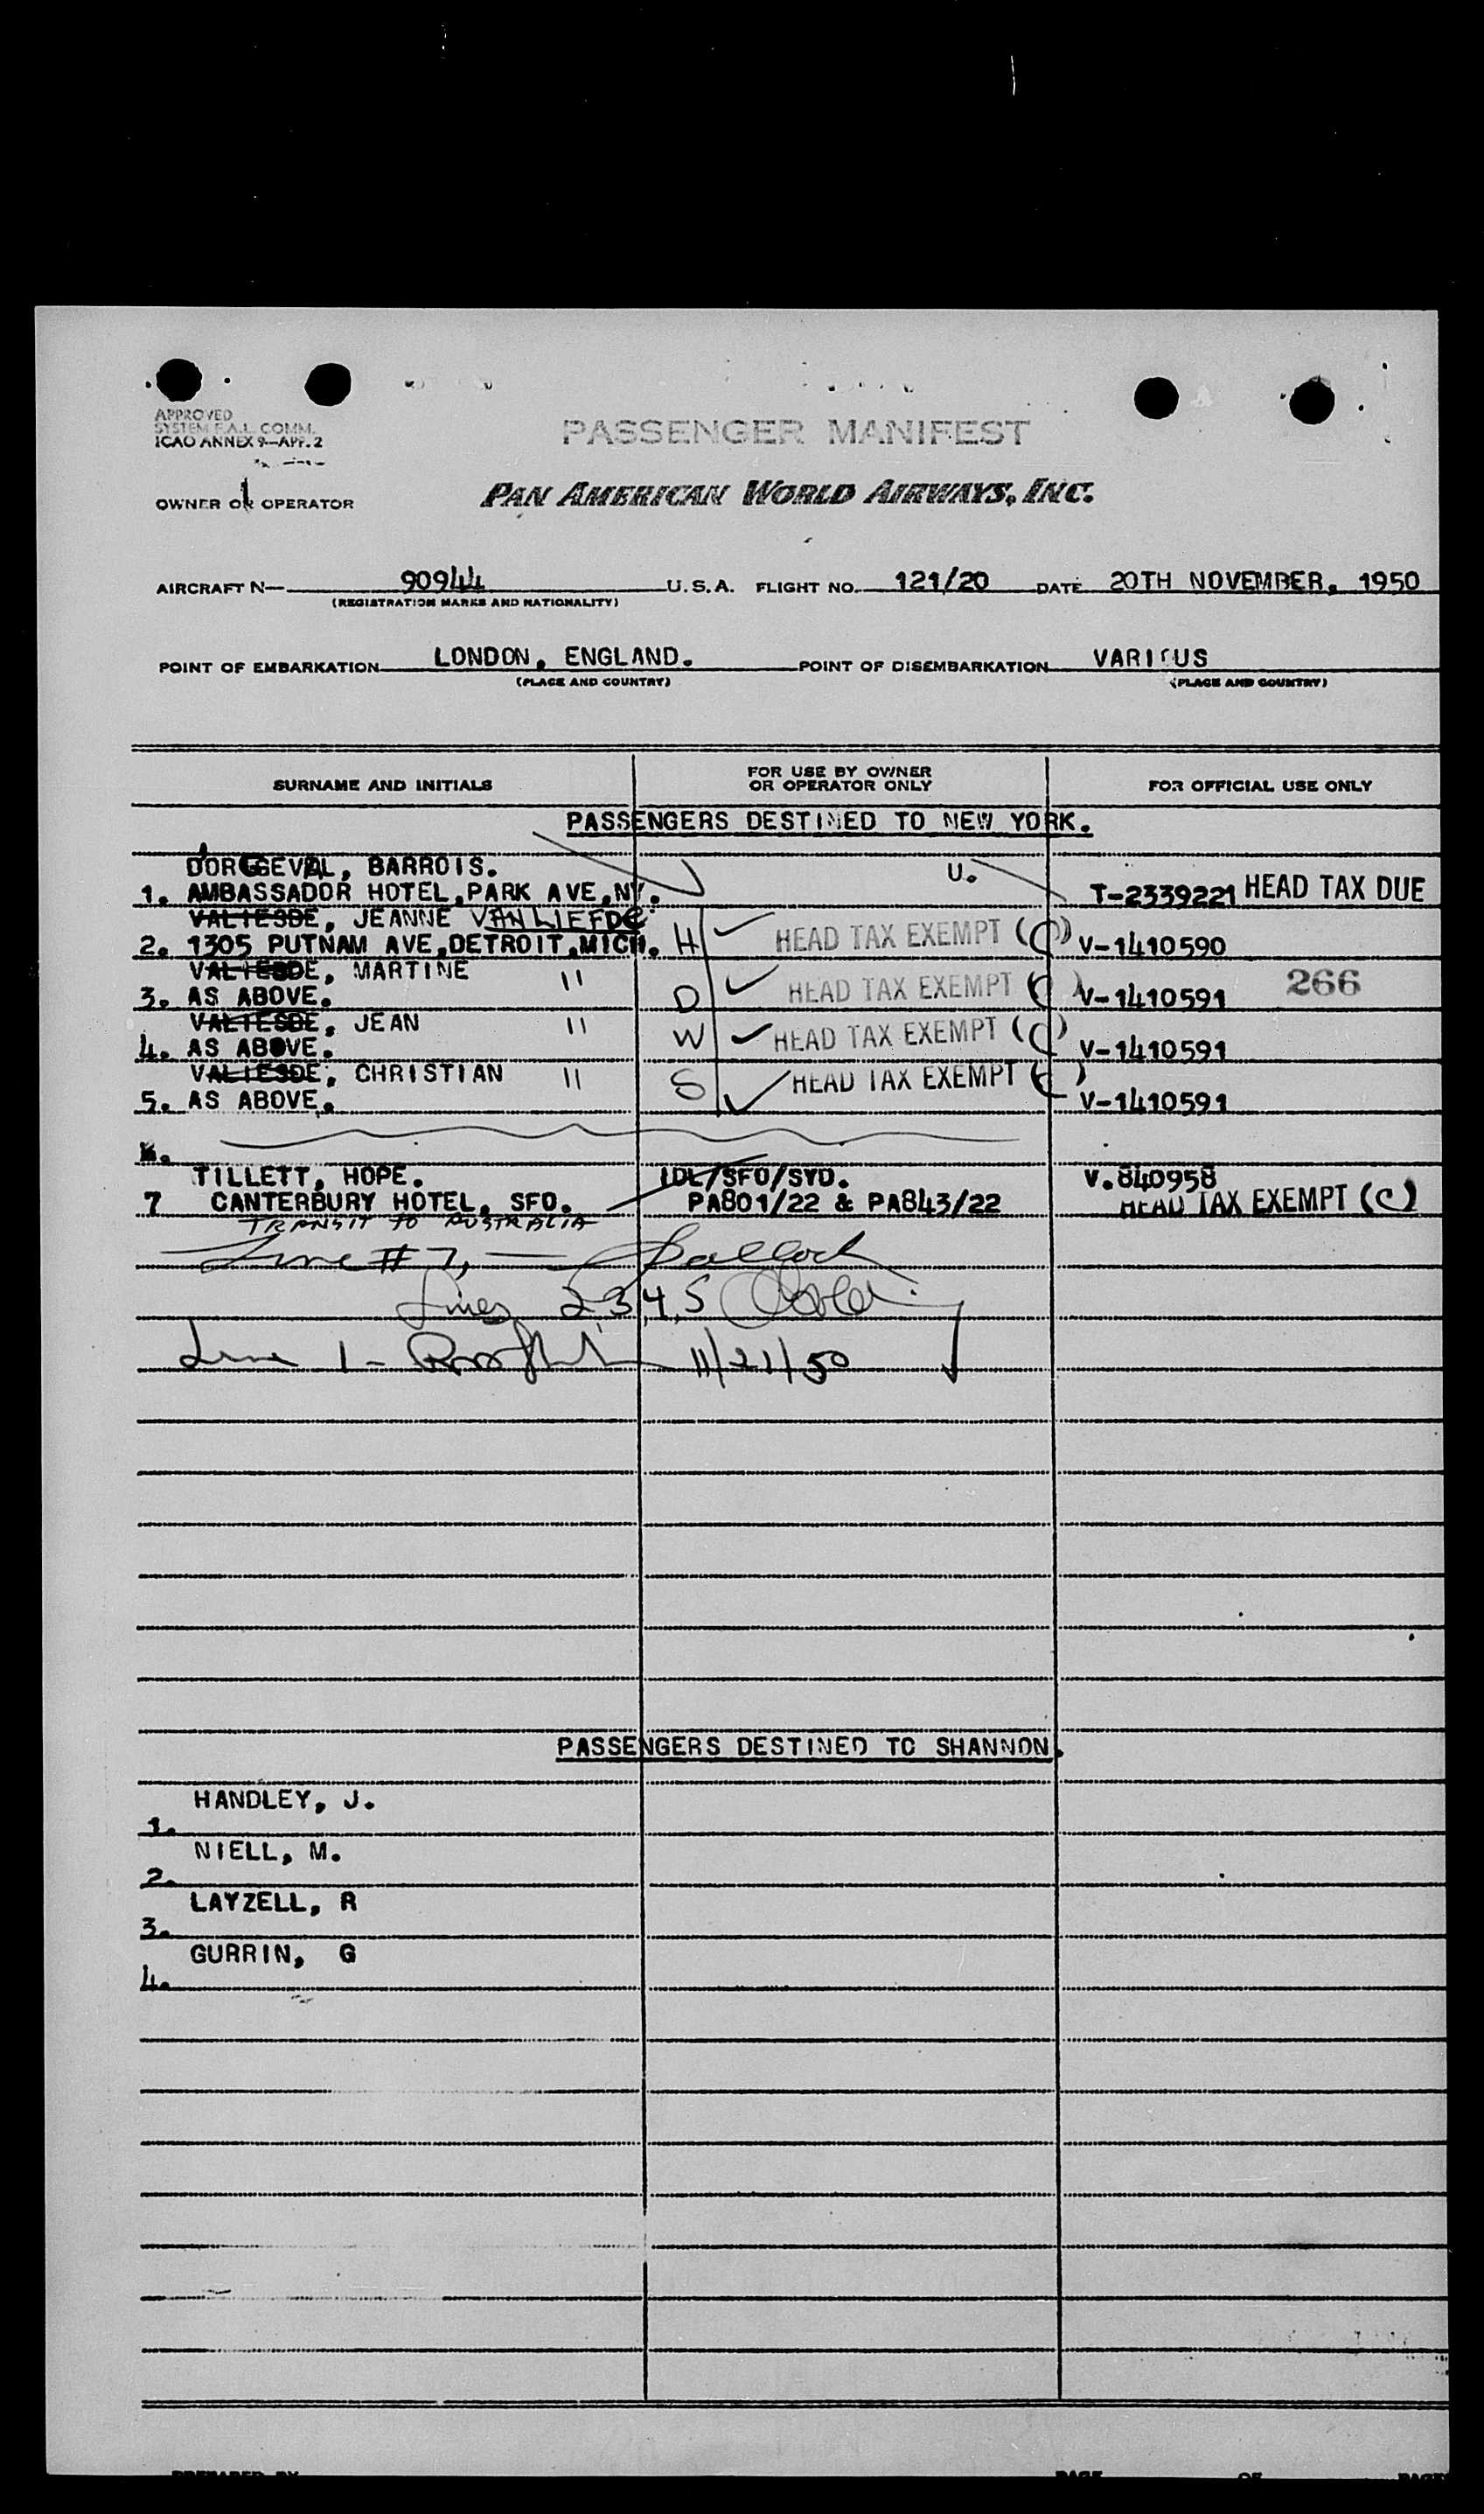 APPROVED
SYSTEM F.A.L. COMM.
ICAO ANNEX 9—APP. 2
PASSENGER MANIFEST
OWNER OR OPERATOR PAN AMERICAN WORLD AIRWAYS, INC.
AIRCRAFT N— 90944 U.S.A. FLIGHT NO. 121/20 DATE 20TH NOVEMBER, 1950
(REGISTRATION MARKS AND NATIONALITY)
POINT OF EMBARKATION LONDON, ENGLAND. POINT OF DISEMBARKATION VARIOUS
(PLACE AND COUNTRY) (PLACE AND COUNTRY)
SURNAME AND INITIALS FOR USE BY OWNER OR OPERATOR ONLY FOR OFFICIAL USE ONLY
PASSENGERS DESTINED TO NEW YORK.
BARROIS. U.
1. AMBASSADOR HOTEL, PARK AVE, NY. T-2339221 HEAD TAX DUE
VALTESDE, JEANNE VAN LIEFDE
2. 1305 PUTNAM AVE, DETROIT, MICH. H HEAD TAX EXEMPT (C) V-1410590
VALTESDE, MARTINE "
3. AS ABOVE. D HEAD TAX EXEMPT (C) V-1410591 266
VALTESDE, JEAN "
4. AS ABOVE. W HEAD TAX EXEMPT (C) V-1410591
VALTESDE, CHRISTIAN "
5. AS ABOVE. S HEAD TAX EXEMPT (C) V-1410591
6.
TILLETT, HOPE. IDL/SFO/SYD. V.840958
7 CANTERBURY HOTEL, SFO. PA801/22 & PA843/22 HEAD TAX EXEMPT (C)
TRANSIT TO AUSTRALIA
Line #7,
Lines 2 3, 4, 5
Line 1 - 11/21/50
PASSENGERS DESTINED TO SHANNON.
HANDLEY, J.
1.
NIELL, M.
2.
LAYZELL, R
3.
GURRIN, G
4.
PREPARED BY PAGE OF PAGES